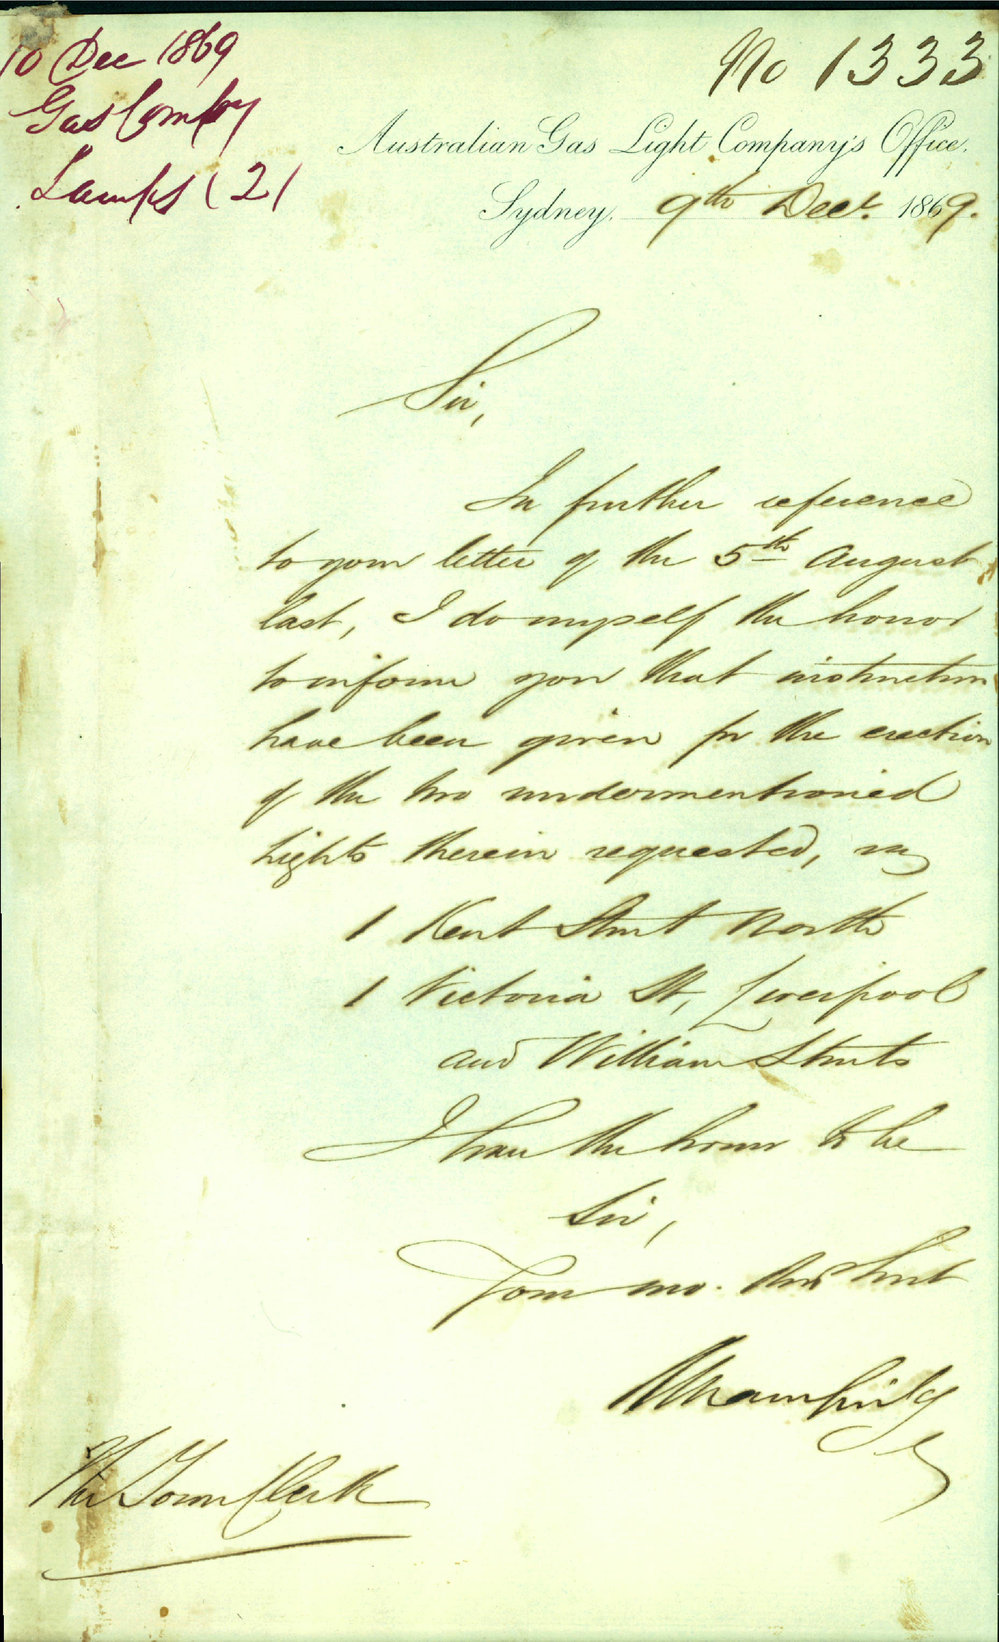 10 Dec 1869
Gas Compy
Lamps (2)
No 1333
Australian Gas Light Company's Office.
Sydney, 9th Decr. 1869.
Sir,
In further reference
to your letter of the 5th August
last, I do myself the honor
to inform you that instruction
have been given for the erection
of the two undermentioned
lights therein requested, viz
1 Kent Street North
1 Victoria St, Liverpool
and William Streets
I have the honor to be
Sir,
Your mo. Obdt Servt
The Town Clerk